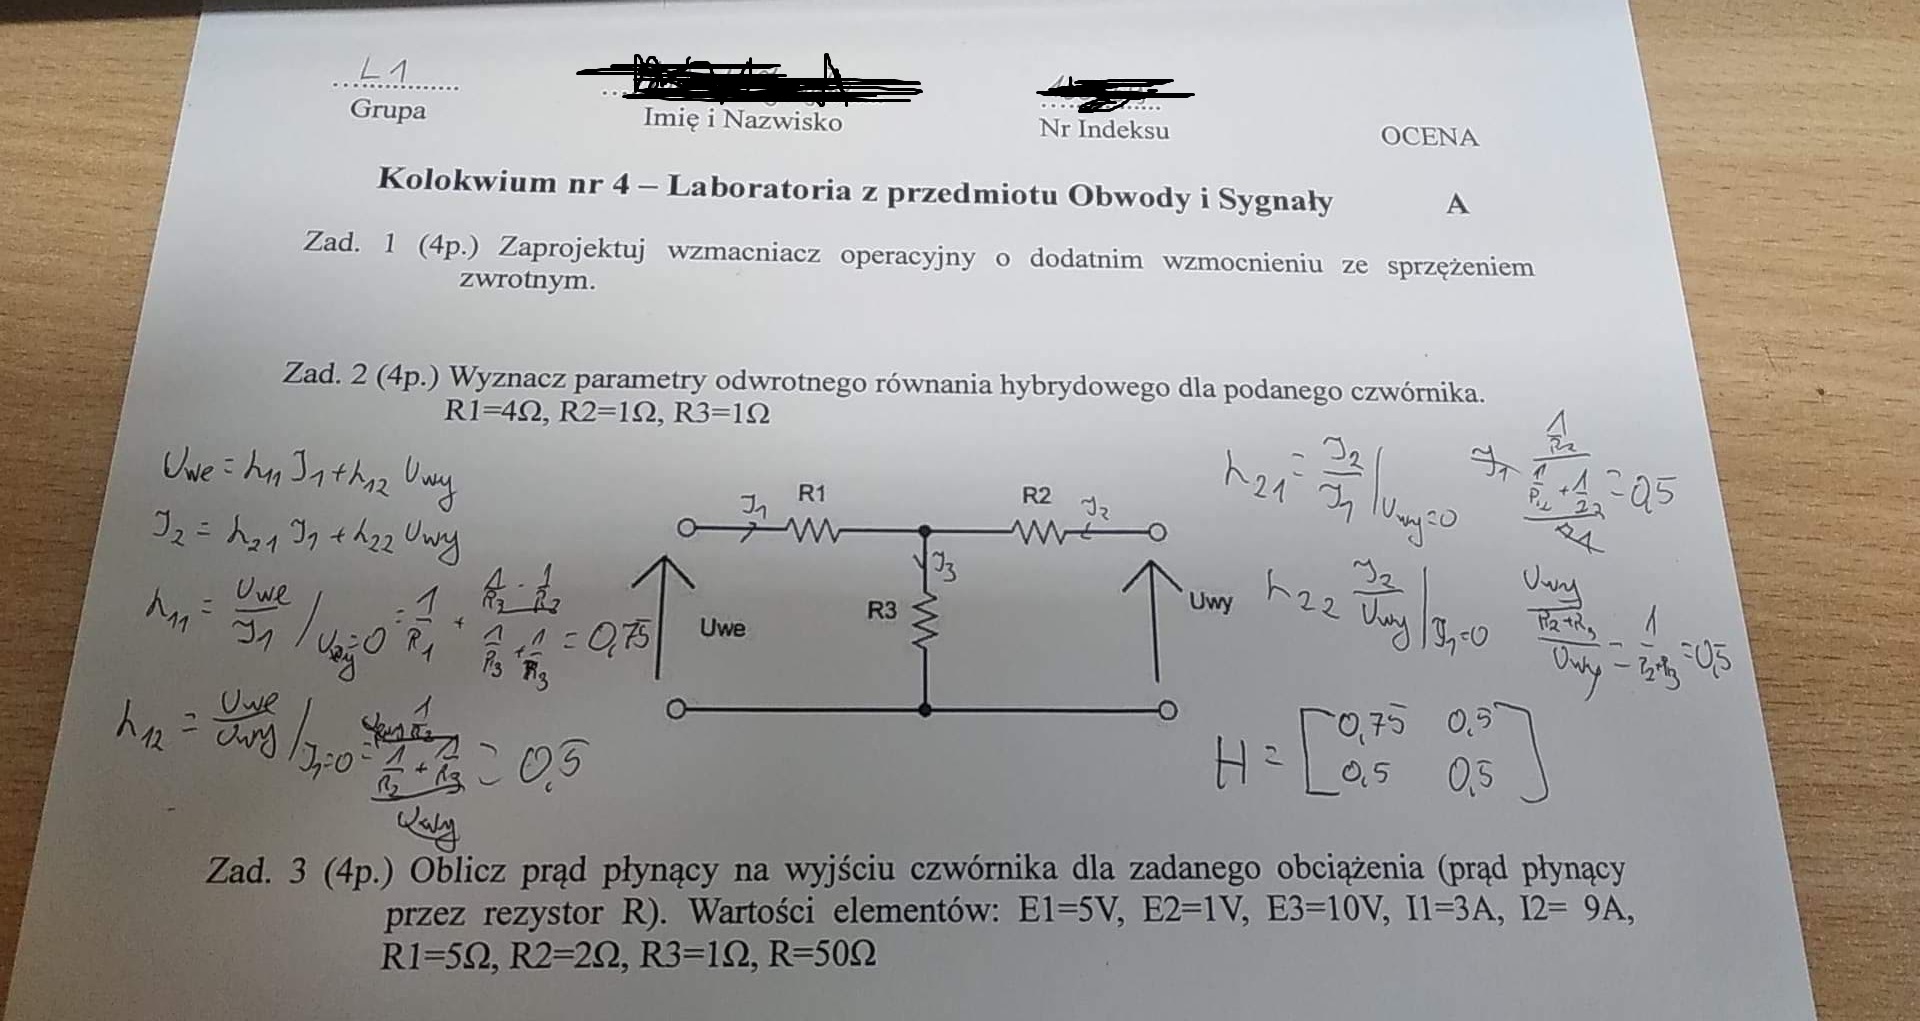 L1
Grupa
Imię i Nazwisko
Nr Indeksu
OCENA
Kolokwium nr 4 – Laboratoria z przedmiotu Obwody i Sygnały
A
Zad. 1 (4p.) Zaprojektuj wzmacniacz operacyjny o dodatnim wzmocnieniu ze sprzężeniem
zwrotnym.
Zad. 2 (4p.) Wyznacz parametry odwrotnego równania hybrydowego dla podanego czwórnika.
R1=4Ω, R2=1Ω, R3=1Ω
Uwe = h11 I1 + h12 Uwy
I2 = h21 I1 + h22 Uwy
h11 = Uwe / I1 | = 0 = 1/R1 + = 0,75
h12 = Uwe / Uwy | I1=0 = = 0,5
R1
R2
I1
I2
I3
R3
Uwe
Uwy
h21 = I2 / I1 | Uwy=0 = 0,5
h22 I2 / Uwy | I1=0 Uwy / R2+R3 / Uwy = 1 = 0,5
H = [ 0,75 0,5
0,5 0,5 ]
Zad. 3 (4p.) Oblicz prąd płynący na wyjściu czwórnika dla zadanego obciążenia (prąd płynący
przez rezystor R). Wartości elementów: E1=5V, E2=1V, E3=10V, I1=3A, I2= 9A,
R1=5Ω, R2=2Ω, R3=1Ω, R=50Ω